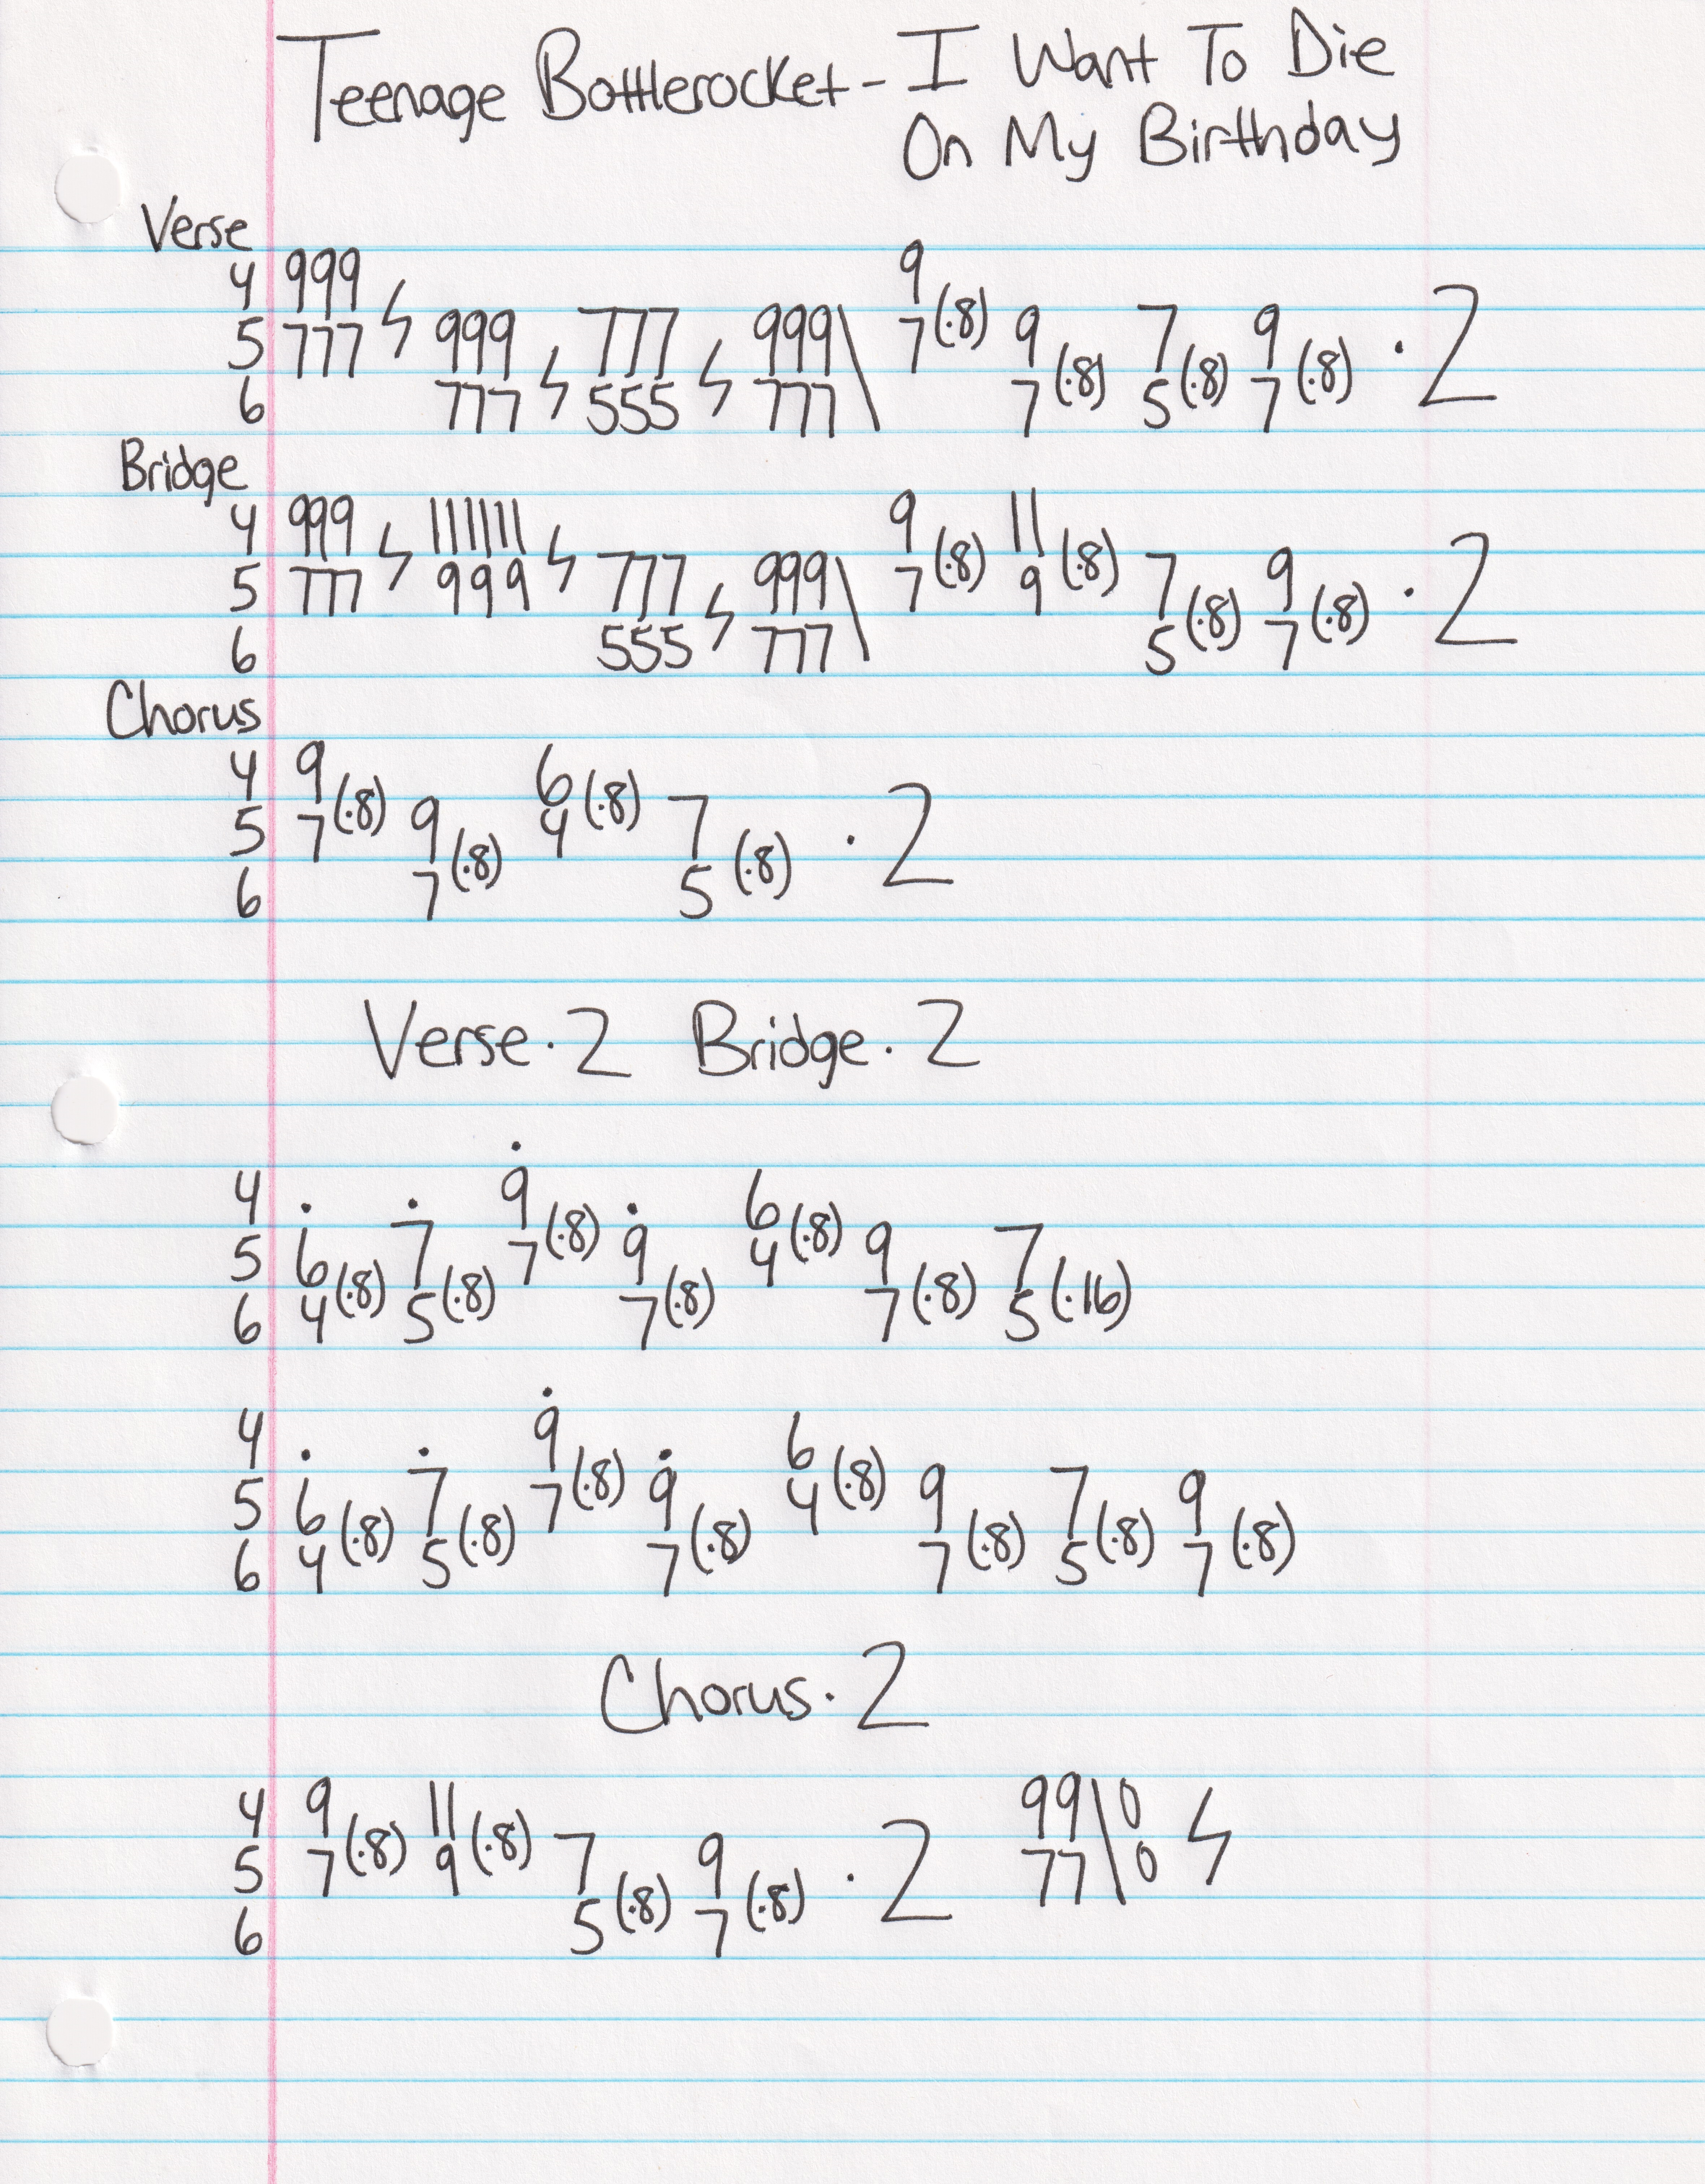 Teenage Bottlerocket - I Want To Die
On My Birthday
Verse
4 999 9
5 777 999 777 999 7(·8) 9 7 9 ·2
6 777 555 777 7(·8) 5(·8) 7(·8)
Bridge
4 999 111111 9 11
5 777 999 777 999 7(·8) 9(·8) 7 9 ·2
6 555 777 5(·8) 7(·8)
Chorus
4 9 6
5 7(·8) 9 4(·8) 7 ·2
6 7(·8) 5(·8)
Verse·2 Bridge·2
4 9 6
5 6 7 7(·8) 9 4(·8) 9 7
6 4(·8) 5(·8) 7(·8) 7(·8) 5(·16)
4 9 6
5 6 7 7(·8) 9 4(·8) 9 7 9
6 4(·8) 5(·8) 7(·8) 7(·8) 5(·8) 7(·8)
Chorus·2
4 9 11 99\0
5 7(·8) 9(·8) 7 9 ·2 77\0
6 5(·8) 7(·8)